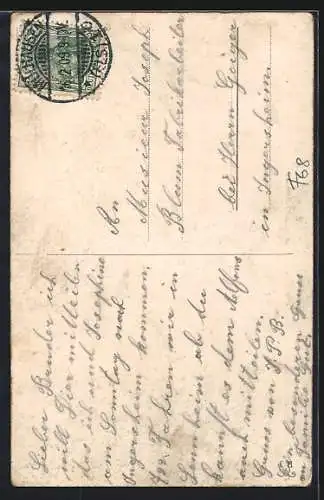 An
Musieur Joseph
Blum Fabrikarbeiter
bei Herrn Geiger
in Ingersheim
F68
Lieber Bruder ich
will Dier mitteilen
das ich und Josephine
am Sonntag nach
Ingersheim kommen.
Fahren wir in
Sennheim ab du
kannst es dem Alfons
auch mitteilen.
Gruss von J. P. B.
Ein besonderen Gruss
an Familie